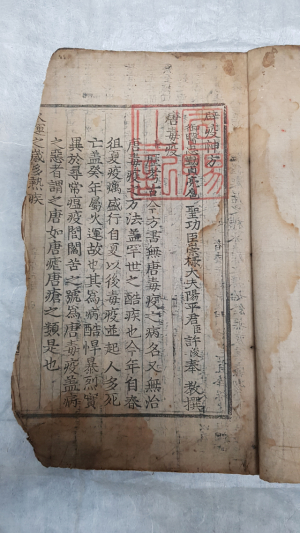 辟疫神方
御醫忠勤貞亮扈聖功臣崇祿大夫陽平君臣許浚奉 教撰
唐毒疫
歷考古今方書無唐毒疫之病名又無治
唐毒疫之方法蓋罕世之酷疾也今年自春
徂夏疫癘盛行自夏以後毒疫並起人多死
亡蓋癸年屬火運故也其爲病酷悍暴烈實
異於尋常瘟疫閭閻苦之號爲唐毒疫蓋病
之惡者謂之唐如唐瘧唐瘡之類是也
運之歲多熱疾